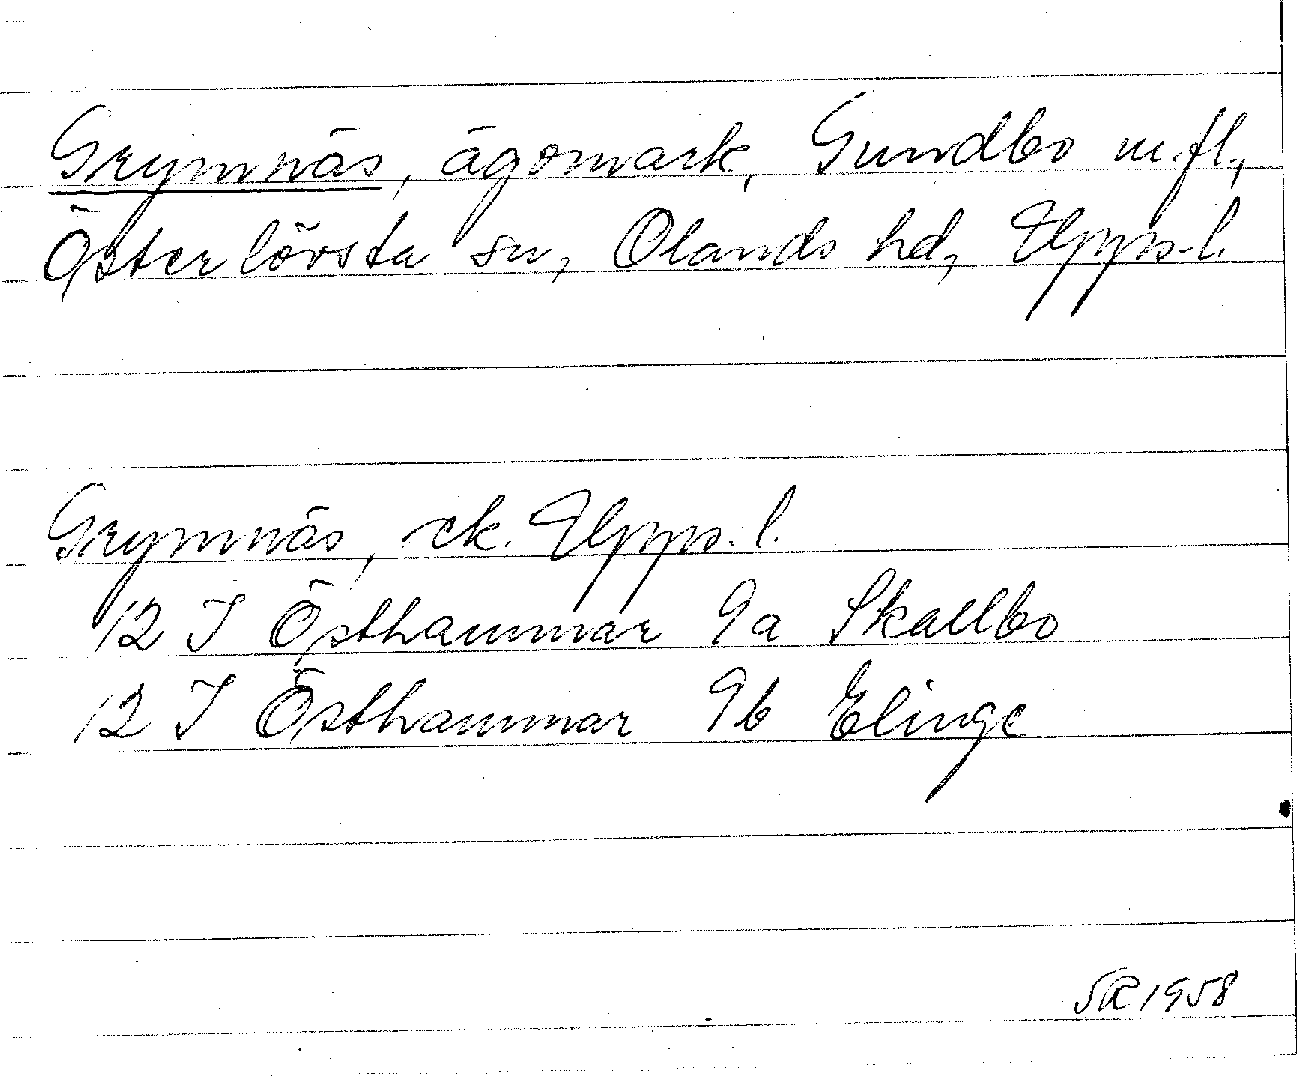 Grymnäs, ägomark, Gundbo m.fl.,
Österlövsta sn, Olands hd, Upps. l.
Grymnäs, ek. Upps. l.
12 I Östhammar 9a Skallbo
12 I Östhammar 9b Elinge
SR 1958